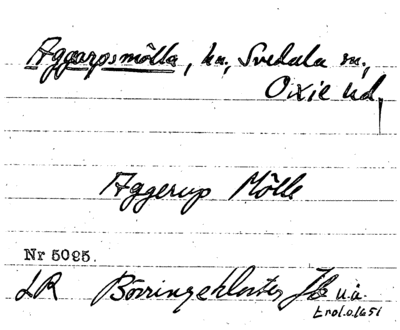 Aggarpsmölla, hn, Svedala sn,
Oxie hd,
Aggerup Mölle
Nr 5095.
LR Börringekloster Jb u.å.
trol. o. 1651